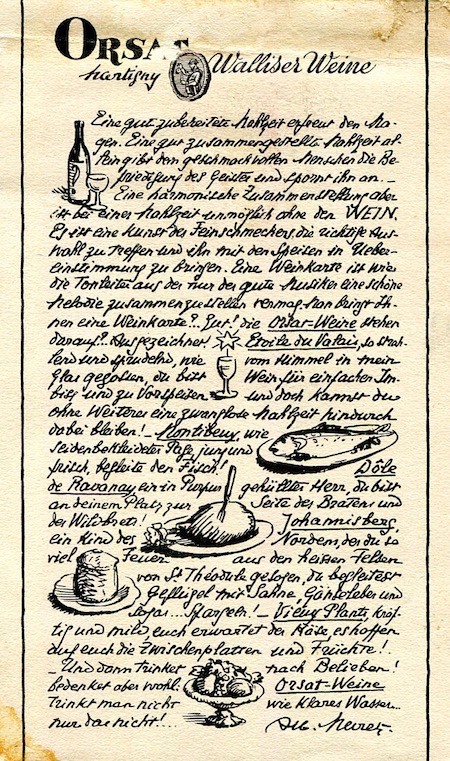 ORSAT
Martigny
Walliser Weine
Eine gut zubereitete Mahlzeit erfreut den Ma-
gen. Eine gut zusammengestellte Mahlzeit al-
lein gibt dem geschmackvollen Menschen die Be-
friedigung des Geistes und spornt ihn an. –
Eine harmonische Zusammenstellung aber
ist bei einer Mahlzeit unmöglich ohne den WEIN.
Es ist eine Kunst des Feinschmeckers die richtige Aus-
wahl zu treffen und ihn mit den Speisen in Ueber-
einstimmung zu bringen. Eine Weinkarte ist wie
die Tonleiter aus der nur der gute Musiker eine schöne
Melodie zusammenzustellen vermag. Man bringt Ih-
nen eine Weinkarte?.. Gut! die Orsat-Weine stehen
darauf?.. Ausgezeichnet. Etoile du Valais, so strah-
lend und sprudelnd, wie vom Himmel in mein
Glas gegossen, du bist Wein für einfachen Im-
biss und zu Vorspeisen und doch kannst du
ohne Weiteres eine zwanglose Mahlzeit hindurch
dabei bleiben! – Montibeux, wie
Seidenbekleideter Page, jung und
frisch, begleite den Fisch! Dôle
de Ravanay ein in Purpur gehüllter Herr, du bist
an deinem Platz zur Seite des Bratens und
des Wildbrets! Johannisberg,
ein Kind des Nordens, der du so
viel Feuer aus den heissen Felsen
von St Théodule gesogen, du begleitest
Geflügel mit Sahne, Gänseleber und
sogar... Spargeln! – Vieux Plants, kräf-
tig und mild, euch erwartet der Käse, es hoffen
auf euch die Zwischenplatten und Früchte!
– Und dann trinket nach Belieben!
bedenket aber wohl: Orsat-Weine
trinkt man nicht wie klares Wasser...
nur das nicht!...